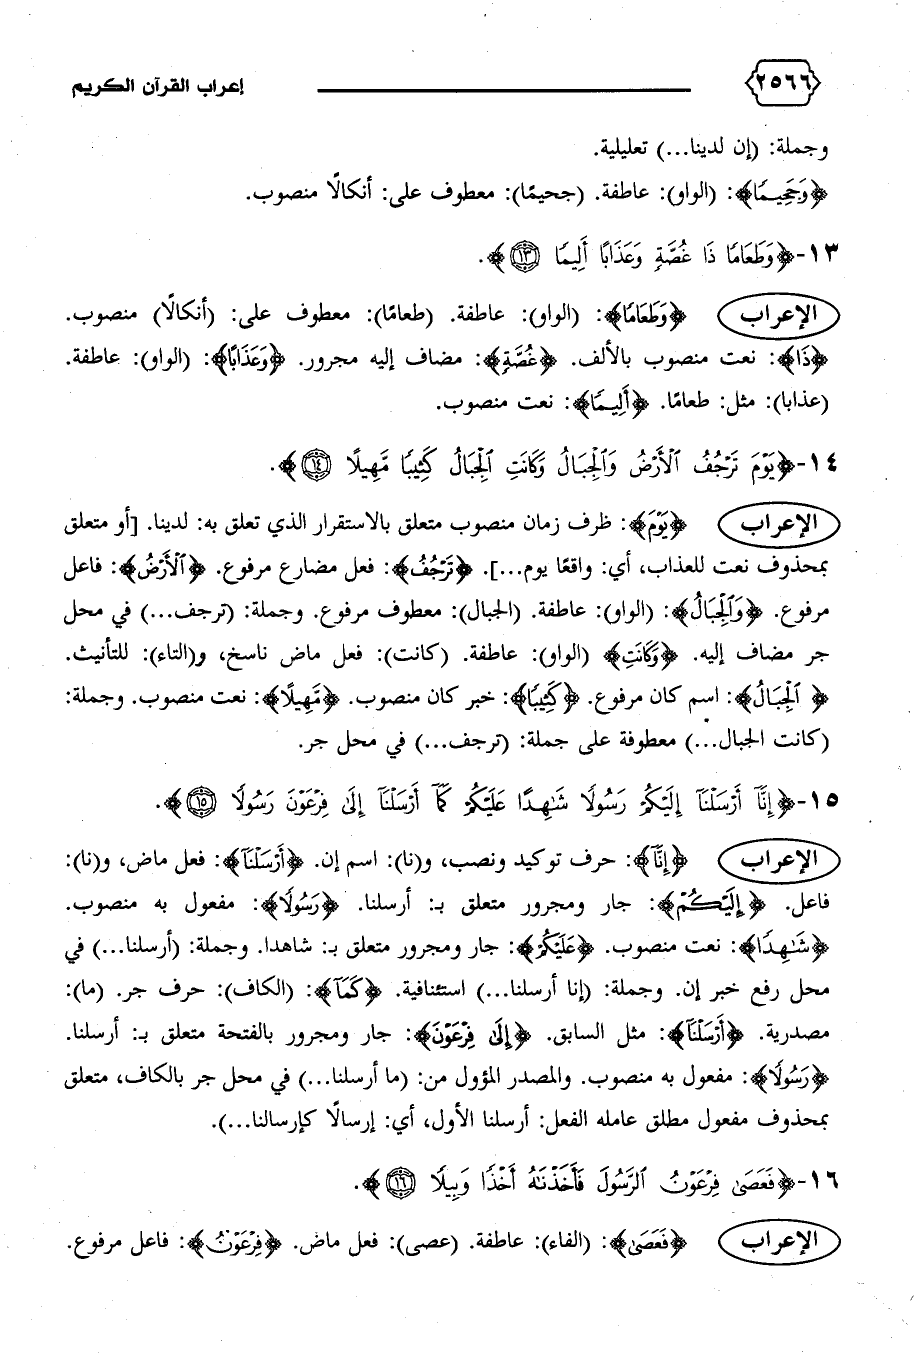 ٢٥٦٦ إعراب القرآن الكريم
وجملة: (إن لدينا...) تعليلية.
﴿وَجَحِيمًا﴾: (الواو): عاطفة. (جحيمًا): معطوف على: أنكالًا منصوب.
١٣-﴿وَطَعَامًا ذَا غُصَّةٍ وَعَذَابًا أَلِيمًا ١٣﴾.
الإعراب ﴿وَطَعَامًا﴾: (الواو): عاطفة. (طعامًا): معطوف على: (أنكالًا) منصوب.
﴿ذَا﴾: نعت منصوب بالألف. ﴿غُصَّةٍ﴾: مضاف إليه مجرور. ﴿وَعَذَابًا﴾: (الواو): عاطفة.
(عذابا): مثل: طعامًا. ﴿أَلِيمًا﴾: نعت منصوب.
١٤-﴿يَوْمَ تَرْجُفُ ٱلْأَرْضُ وَٱلْجِبَالُ وَكَانَتِ ٱلْجِبَالُ كَثِيبًا مَّهِيلًا ١٤﴾.
الإعراب ﴿يَوْمَ﴾: ظرف زمان منصوب متعلق بالاستقرار الذي تعلق به: لدينا. [أو متعلق
بمحذوف نعت للعذاب، أي: واقعًا يوم...]. ﴿تَرْجُفُ﴾: فعل مضارع مرفوع. ﴿ٱلْأَرْضُ﴾: فاعل
مرفوع. ﴿وَٱلْجِبَالُ﴾: (الواو): عاطفة. (الجبال): معطوف مرفوع. وجملة: (ترجف...) في محل
جر مضاف إليه. ﴿وَكَانَتِ﴾ (الواو): عاطفة. (كانت): فعل ماض ناسخ، و(التاء): للتأنيث.
﴿ٱلْجِبَالُ﴾: اسم كان مرفوع. ﴿كَثِيبًا﴾: خبر كان منصوب. ﴿مَّهِيلًا﴾: نعت منصوب. وجملة:
(كانت الجبال...) معطوفة على جملة: (ترجف...) في محل جر.
١٥-﴿إِنَّآ أَرْسَلْنَآ إِلَيْكُمْ رَسُولًا شَٰهِدًا عَلَيْكُمْ كَمَآ أَرْسَلْنَآ إِلَىٰ فِرْعَوْنَ رَسُولًا ١٥﴾.
الإعراب ﴿إِنَّآ﴾: حرف توكيد ونصب، و(نا): اسم إن. ﴿أَرْسَلْنَآ﴾: فعل ماض، و(نا):
فاعل. ﴿إِلَيْكُمْ﴾: جار ومجرور متعلق بـ: أرسلنا. ﴿رَسُولًا﴾: مفعول به منصوب.
﴿شَٰهِدًا﴾: نعت منصوب. ﴿عَلَيْكُمْ﴾: جار ومجرور متعلق بـ: شاهدا. وجملة: (أرسلنا...) في
محل رفع خبر إن. وجملة: (إنا أرسلنا...) استئنافية. ﴿كَمَآ﴾: (الكاف): حرف جر. (ما):
مصدرية. ﴿أَرْسَلْنَآ﴾: مثل السابق. ﴿إِلَىٰ فِرْعَوْنَ﴾: جار ومجرور بالفتحة متعلق بـ: أرسلنا.
﴿رَسُولًا﴾: مفعول به منصوب. والمصدر المؤول من: (ما أرسلنا...) في محل جر بالكاف، متعلق
بمحذوف مفعول مطلق عامله الفعل: أرسلنا الأول، أي: إرسالًا كإرسالنا...).
١٦-﴿فَعَصَىٰ فِرْعَوْنُ ٱلرَّسُولَ فَأَخَذْنَٰهُ أَخْذًا وَبِيلًا ١٦﴾.
الإعراب ﴿فَعَصَىٰ﴾: (الفاء): عاطفة. (عصى): فعل ماض. ﴿فِرْعَوْنُ﴾: فاعل مرفوع.